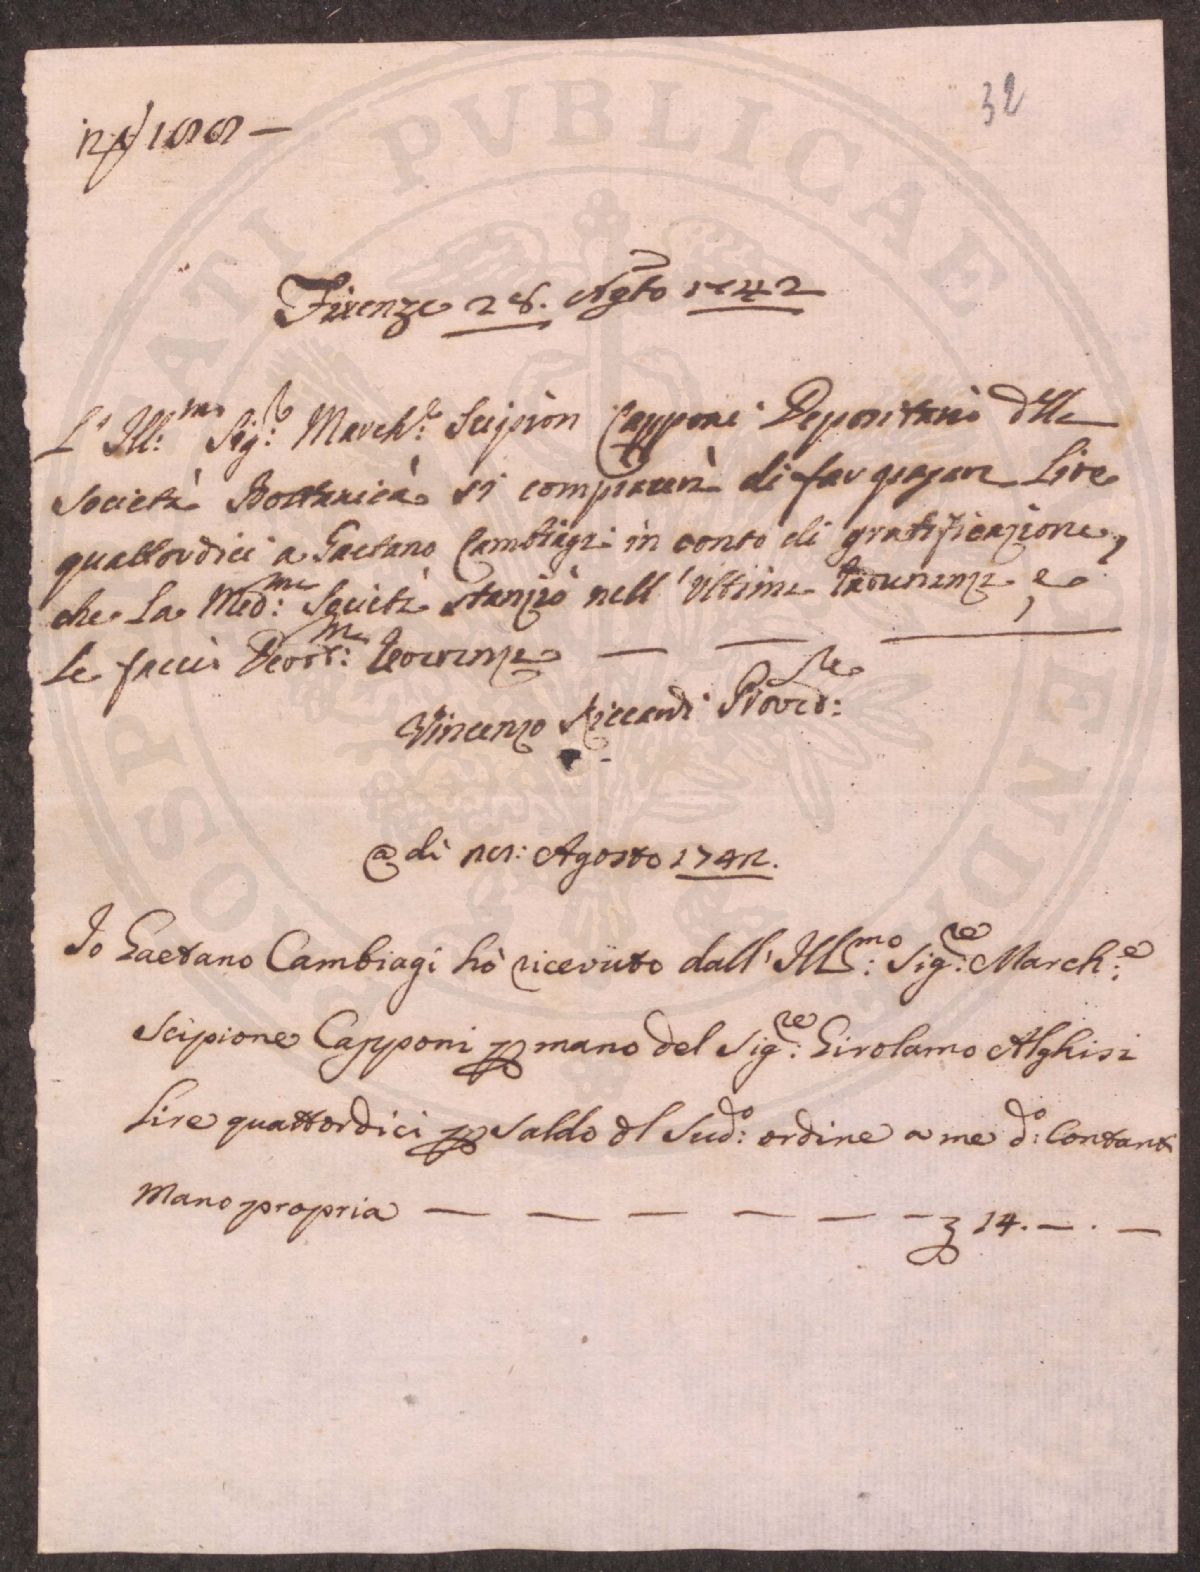 32
Firenze 28. Agto 1742
L' Ill:mo Sig:re March:e Scipion Capponi Depositario dlla
Società Bottanica si compiacerà di far pagare Lire
quattordici a Gaetano Cambiagi in conto di gratificazione,
che La Med:ma Società stanziò nell' Ultima Adunanza e
Le faccio Devot:ma Reverenza
Vincenzo Riccardi Proved:re
@ di 28: Agosto 1742.
Io Gaetano Cambiagi hò ricevuto dall' Ill:mo Sig:re March:e
Scipione Capponi p mano del Sig:re Girolamo Alghisi
Lire quattordici p saldo dl Sud:o ordine a me d:o Contanti
Mano propria — — — — — — 14. — . —